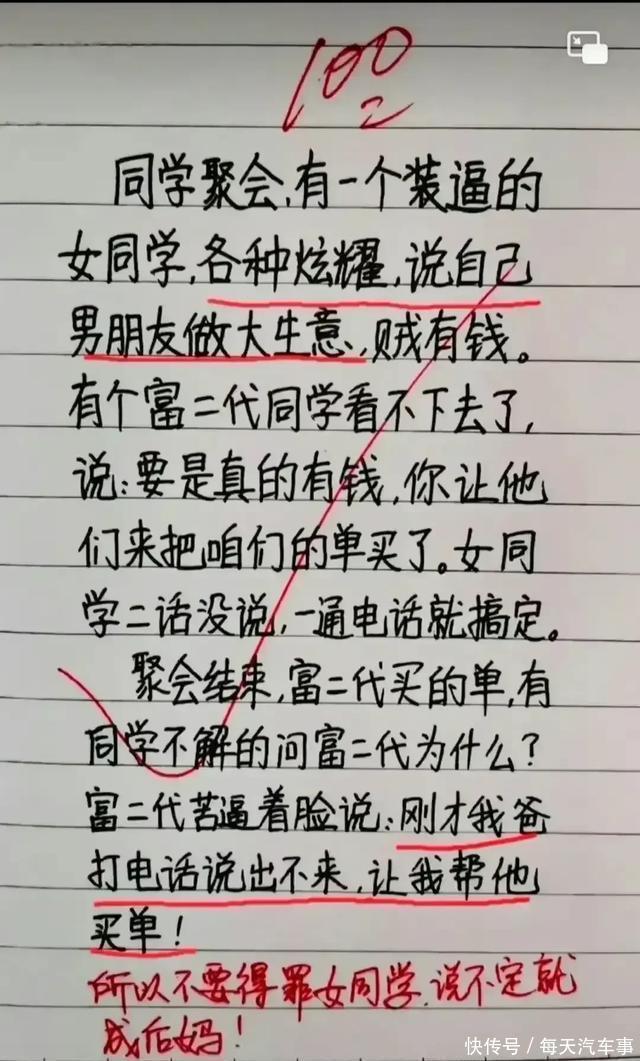 100
同学聚会,有一个装逼的
女同学,各种炫耀,说自己
男朋友做大生意,贼有钱。
有个富二代同学看不下去了,
说:要是真的有钱,你让他
们来把咱们的单买了。女同
学二话没说,一通电话就搞定。
聚会结束,富二代买的单,有
同学不解的问富二代为什么?
富二代苦逼着脸说:刚才我爸
打电话说出不来,让我帮他
买单!
所以不要得罪女同学,说不定就
成后妈!
快传号/每天汽车事